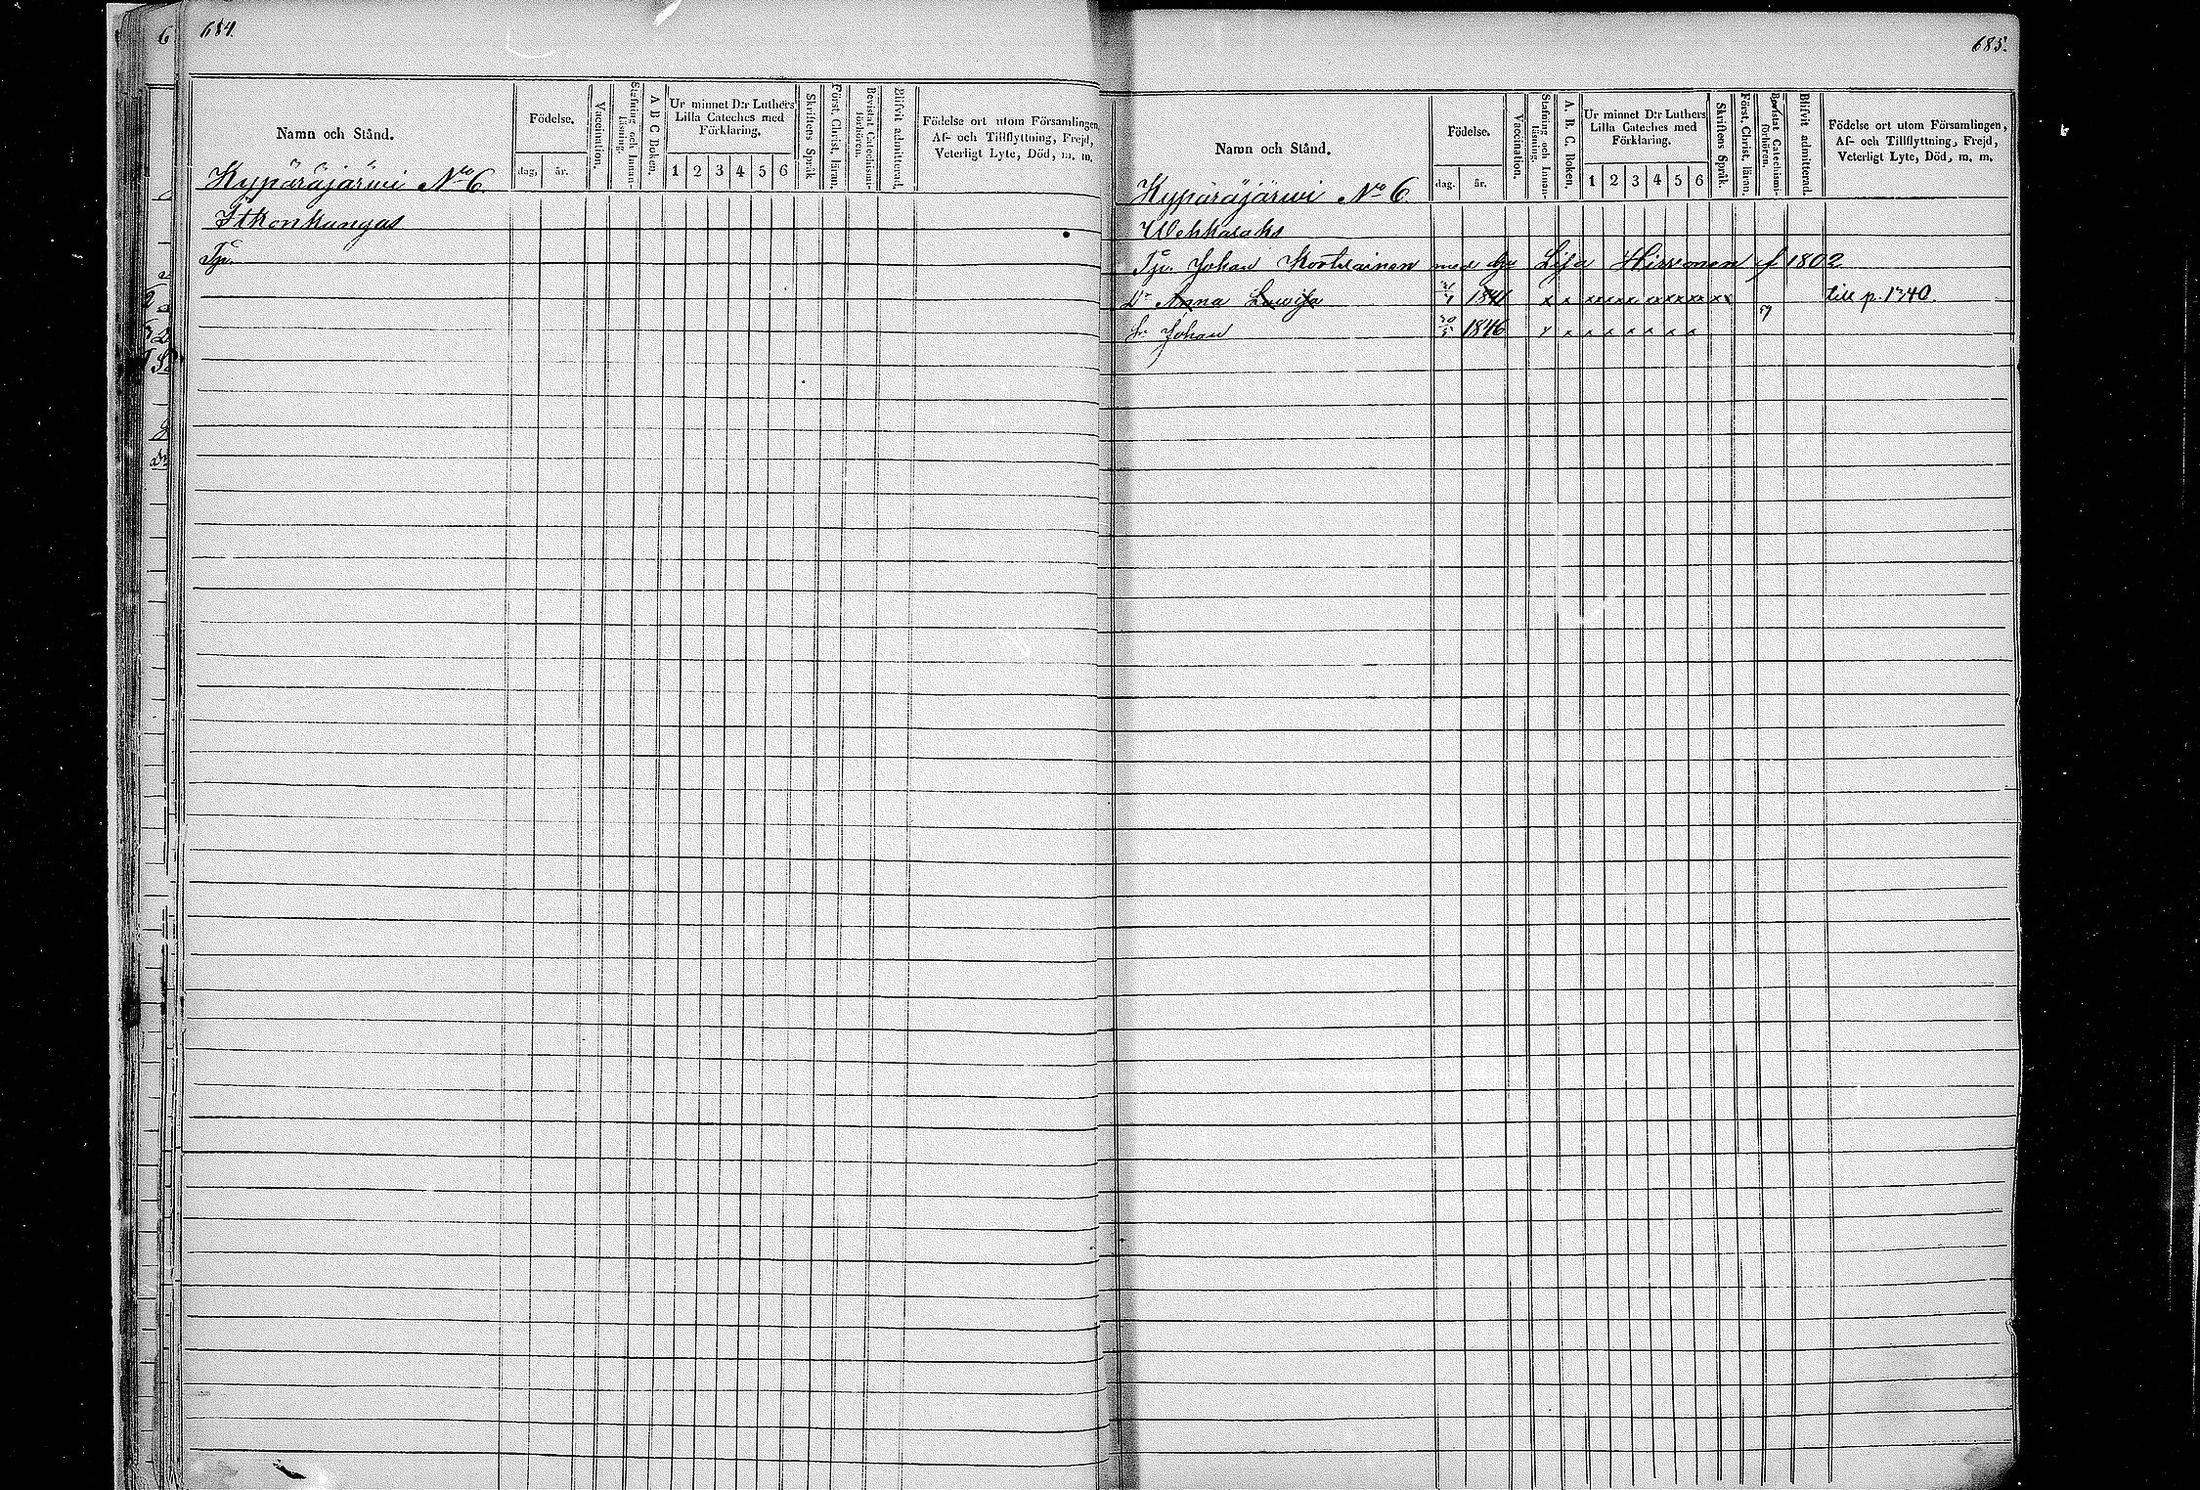 684.
Namn och Stånd.
Födelse.
dag, år.
Vaccination.
Stafning och Innan-läsning.
A B C Boken.
Ur minnet D:r Luthers
Lilla Cateches med
Förklaring.
1 2 3 4 5 6
Skriftens Språk.
Först. Christ. läran.
Bevistat Catechismi-förhören.
Blifvit admitterad.
Födelse ort utom Församlingen,
Af- och Tillflyttning, Frejd,
Veterligt Lyte, Död, m. m.
Kypäräjärwi No 6
Itkonkangas
Tp.
685.
Namn och Stånd.
Födelse.
dag. år.
Vaccination.
Stafning och Innan-läsning.
A. B. C. Boken.
Ur minnet D:r Luthers
Lilla Cateches med
Förklaring.
1 2 3 4 5 6
Skriftens Språk.
Först. Christ. läran.
Bevistat Catechismi-förhören.
Blifvit admitterad.
Födelse ort utom Församlingen,
Af- och Tillflyttning, Frejd,
Veterligt Lyte, Död, m. m.
Kypäräjärwi No 6
Johan med Lisa Hirvonen f 1802
Dr Anna Lowisa 1841 till p. 1340.
Sr Johan 1846